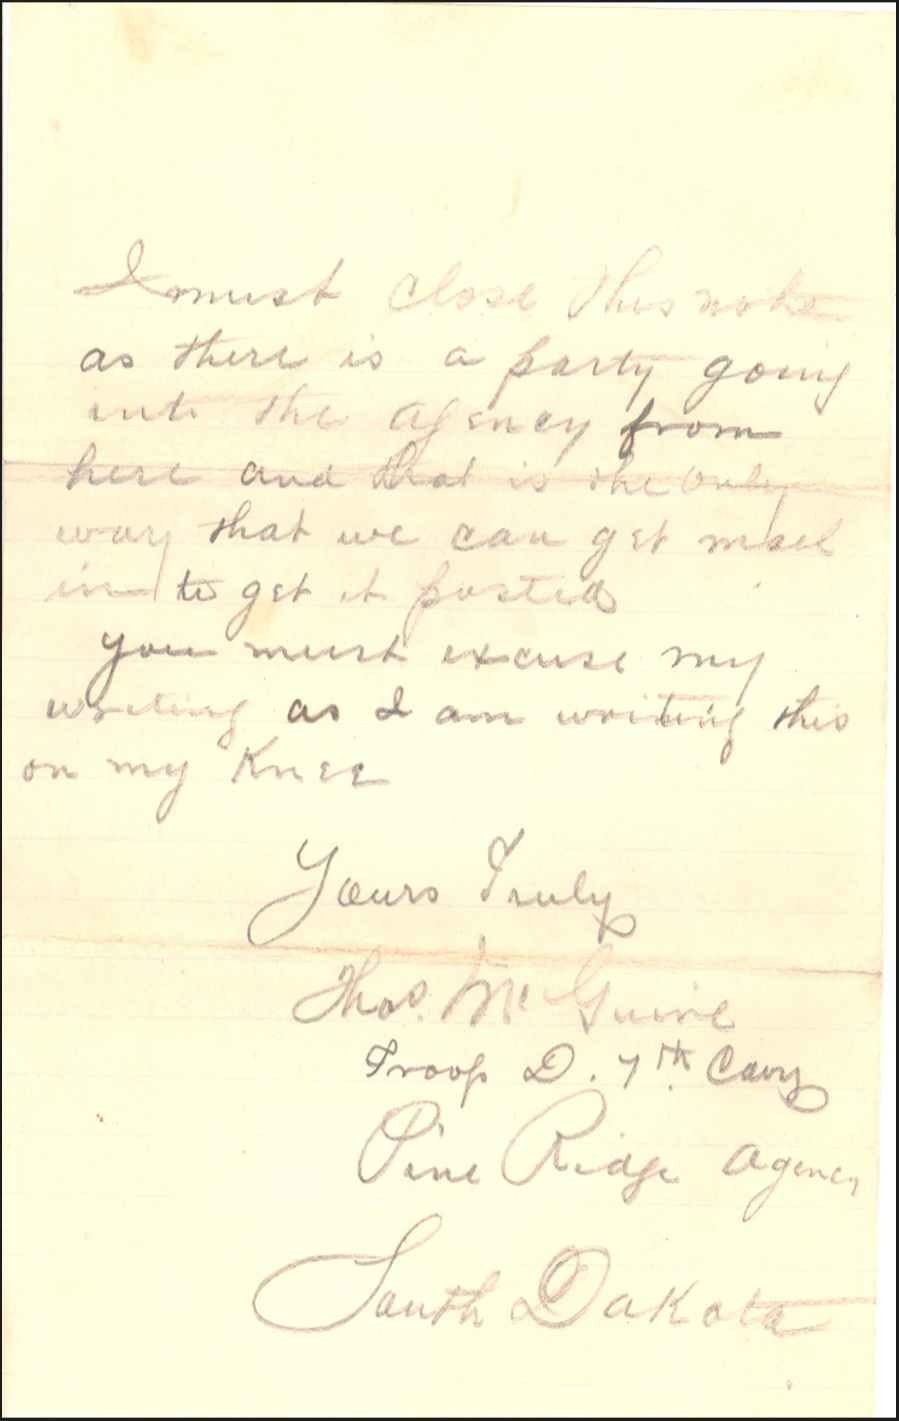 I must close this note
as there is a party going
into the agency from
here and that is the only
way that we can get mail
in to get it posted
you must excuse my
writing as I am writing this
on my Knee
Yours Truly
Thos. McGuire
Troop D. 7th Cavy
Pine Ridge Agency
South Dakota